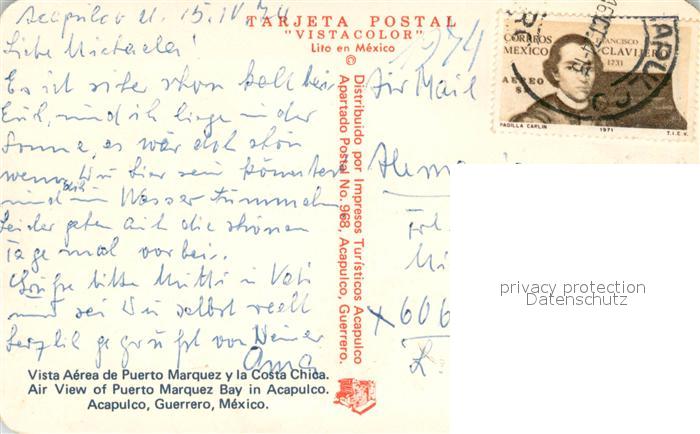 Acapulco d. 15.IV.74
Liebe Michaela!
Es ist sicher schon kalt bei
Euch, und ich liege in der
Sonne, es wär doch schön
wenn Du hier sein könntest
und dich im Wasser tummeln
Leider gehen auch die schönen
Tage mal vorbei.
Grüße bitte Mutti u Vati
und sei Du selbst recht
herzlich gegrüßt von Deiner
Oma
TARJETA POSTAL
"VISTACOLOR"
Lito en México
©
Distribuido por Impresos Turísticos Acapulco
Apartado Postal No. 968, Acapulco, Guerrero.
1974
Air Mail
CORREOS
MEXICO
FRANCISCO
CLAVIJERO
1731
AEREO
PADILLA CARLIN
1971
T.I.E.V.
606
privacy protection
Datenschutz
Vista Aérea de Puerto Marquez y la Costa Chica.
Air View of Puerto Marquez Bay in Acapulco.
Acapulco, Guerrero, México.